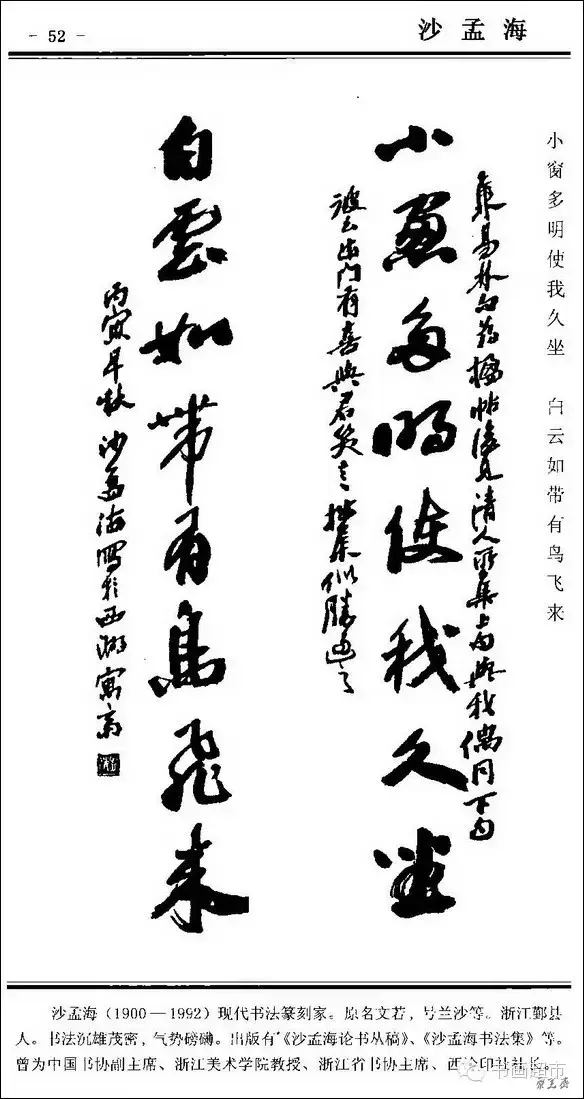 - 52 -
沙孟海
小窗多明使我久坐 白云如带有鸟飞来
集易林句為楹帖後見清人所集上句與我偶同下句
小窗多明使我久坐
彼云出門有喜與君笑言拙集似勝過之
白雲如帶有鳥飛來
丙寅早秋沙孟海寫於西湖寓齋
沙孟海(1900—1992)现代书法篆刻家。原名文若,号兰沙等。浙江鄞县
人。书法沉雄茂密,气势磅礴。出版有《沙孟海论书丛稿》、《沙孟海书法集》等。
曾为中国书协副主席、浙江美术学院教授、浙江省书协主席、西泠印社社长。
书画超市